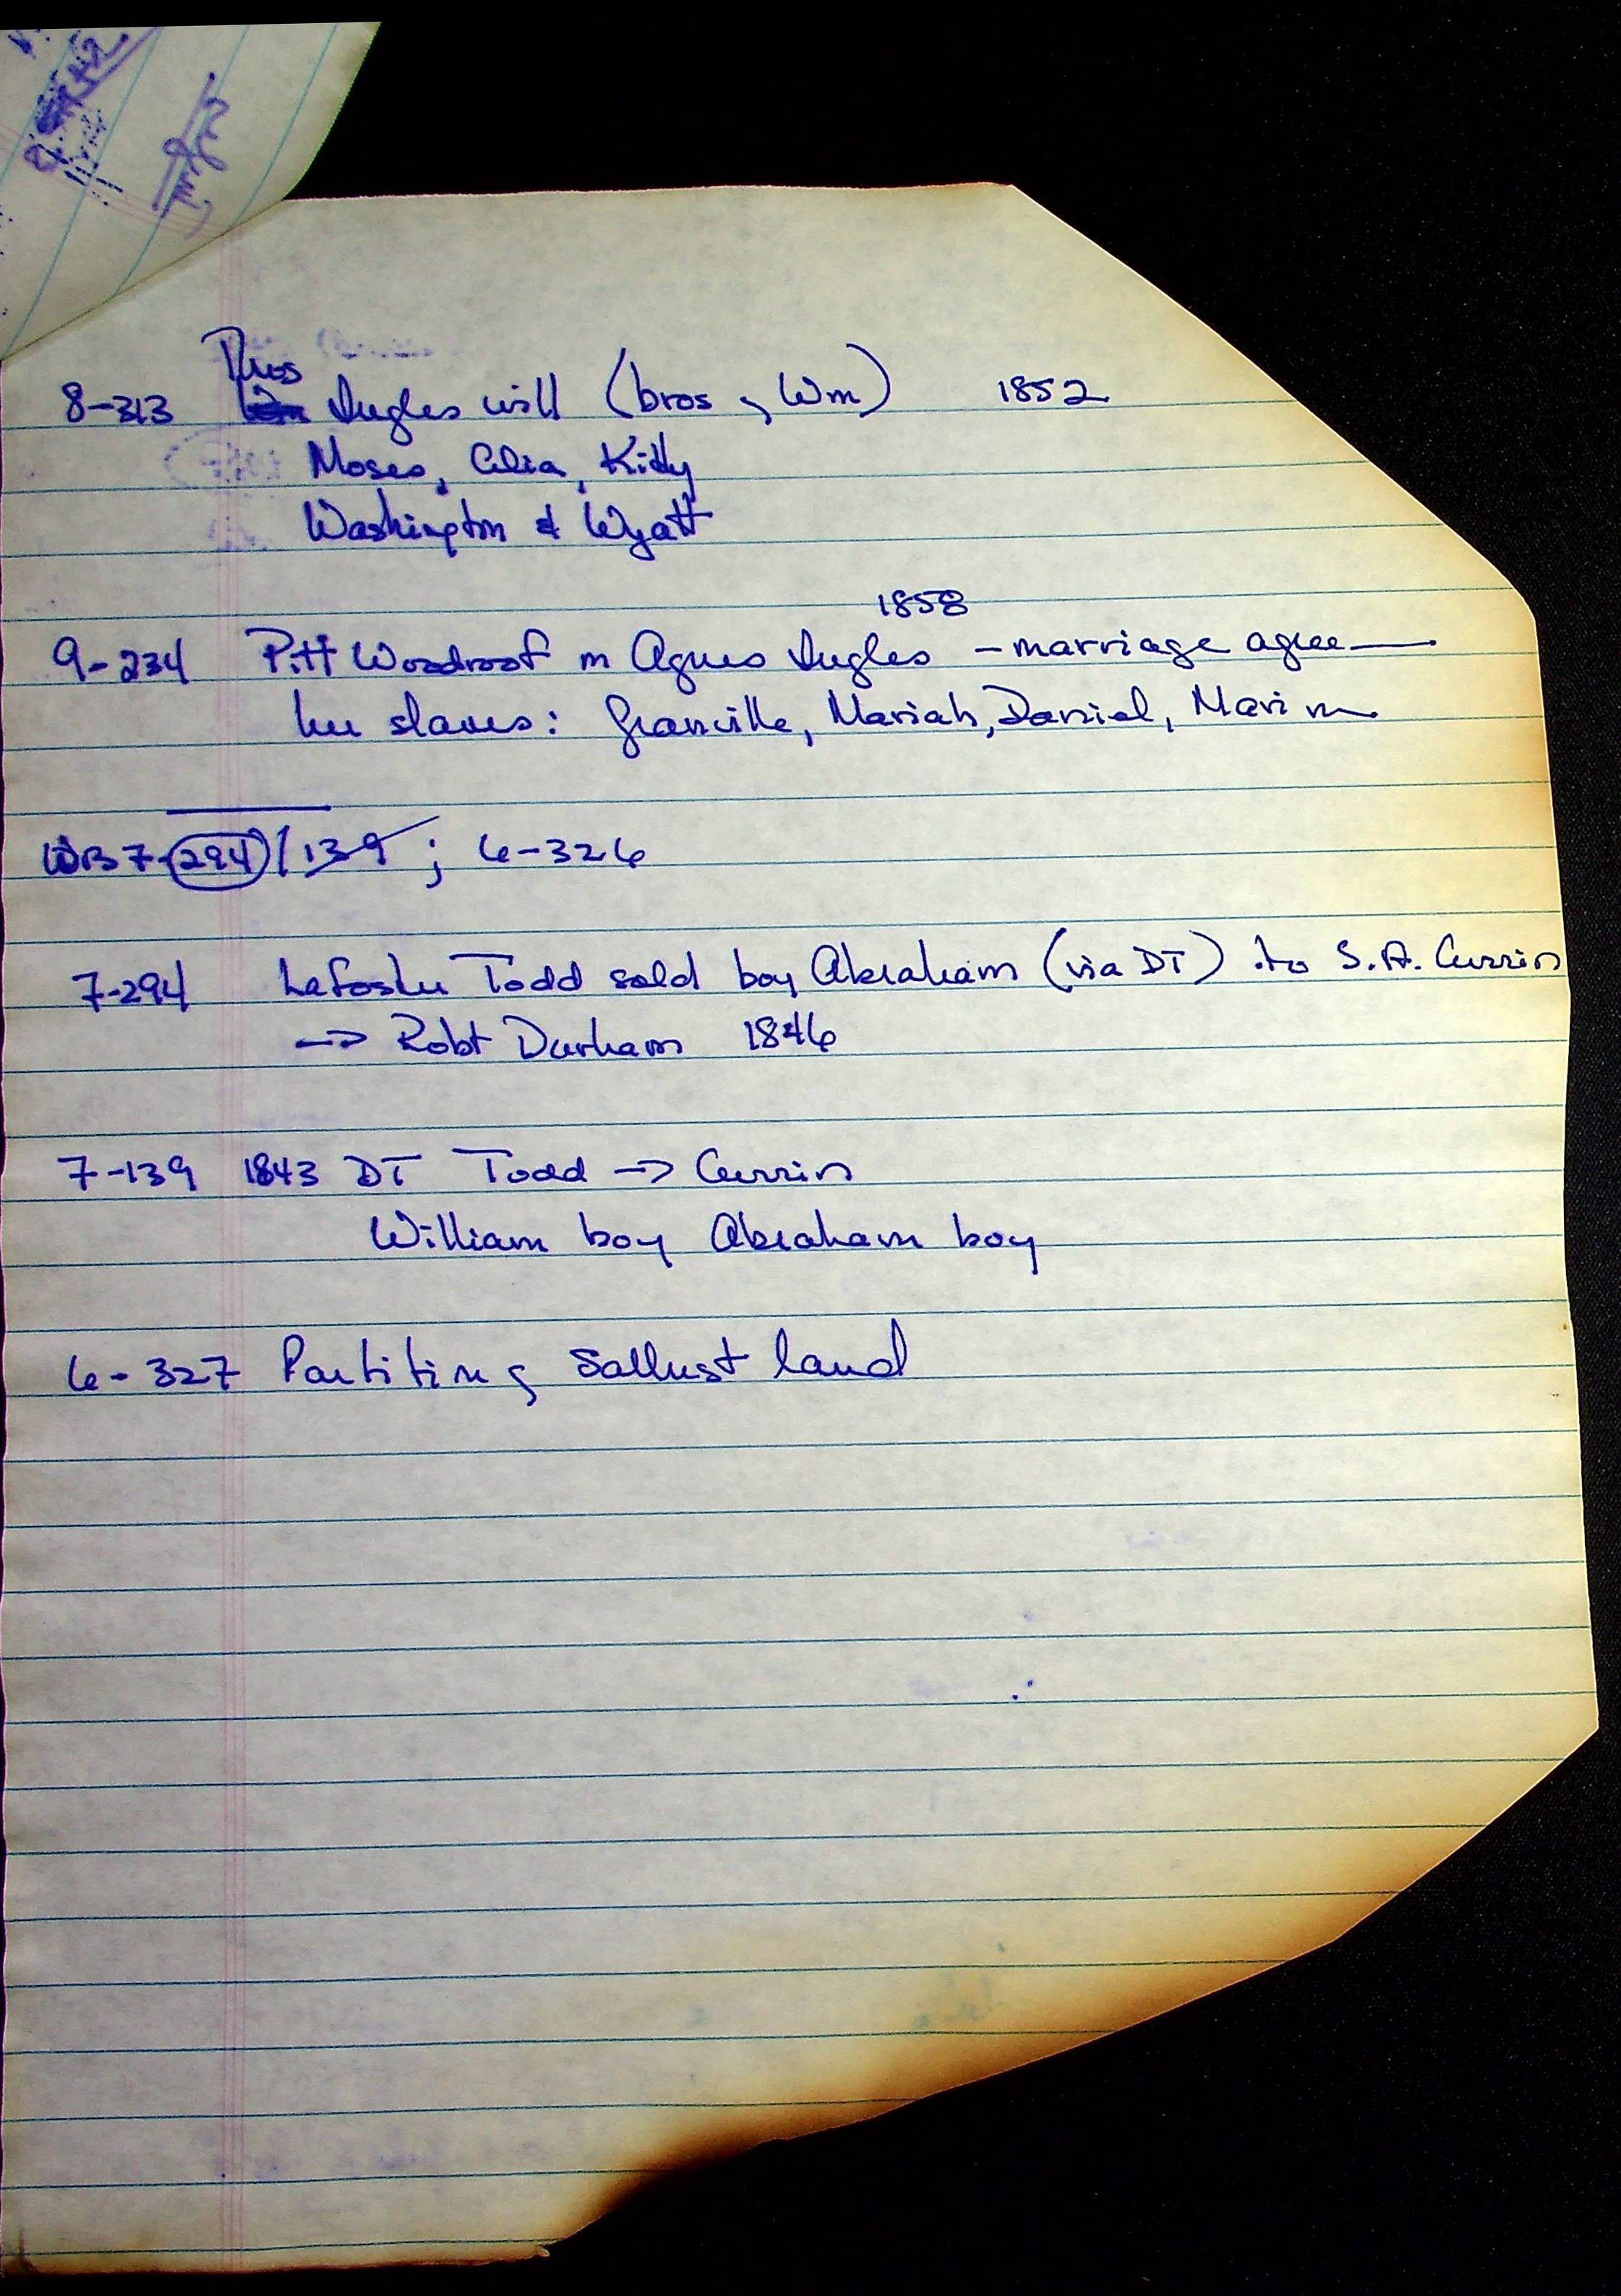 Thos
8-313 Ingles will (bros of Wm) 1852
Moses, Celia, Kitty
Washington & Wyatt
1858
9-234 Pitt Woodroof m Agnes Ingles - marriage agree
her slaves: Granville, Mariah, Daniel, Marim
WB7-294/139; 6-326
7-294 Lafostu Todd sold boy Abraham (via DT) to S.A. Currin
-> Robt Durham 1846
7-139 1843 DT Todd -> Currin
William boy Abraham boy
6-327 Partition of Sallust land